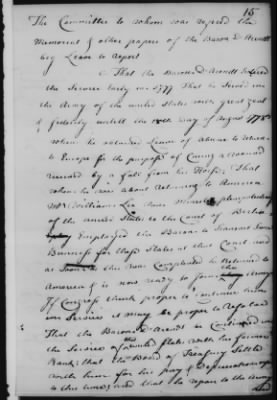 15
The Committee to whom was refered the
Memorial & other papers of the Baron D Arendt
beg Leave to report
That the Baron D Arendt entered
the Service early in 1777 That he Served in
the Army of the united States with great zeal
& fidelity untill the day of August 1778
when he obtained Leave of absence to return
to Europe for the purpose of Cureing a wound
received by a fall from his Horse; That
when he was about returning to America
Mr William Lee then Minister plenipotentiary
of the united States to the Court of Berlin
Employed the Baron to Transact Some
Business for these States at that Court and
as Soon as this was Compleated he Returned to
America & is now ready to Join the Army
If Congress think proper to continue him
in Service it may be proper to resolve
That the Baron D Arendt be Continued in
the Service of the united States with his former
Rank; that the Board of Treasury Settle
with him for his pay & Depreciation
to this time, and that he repair to the Army